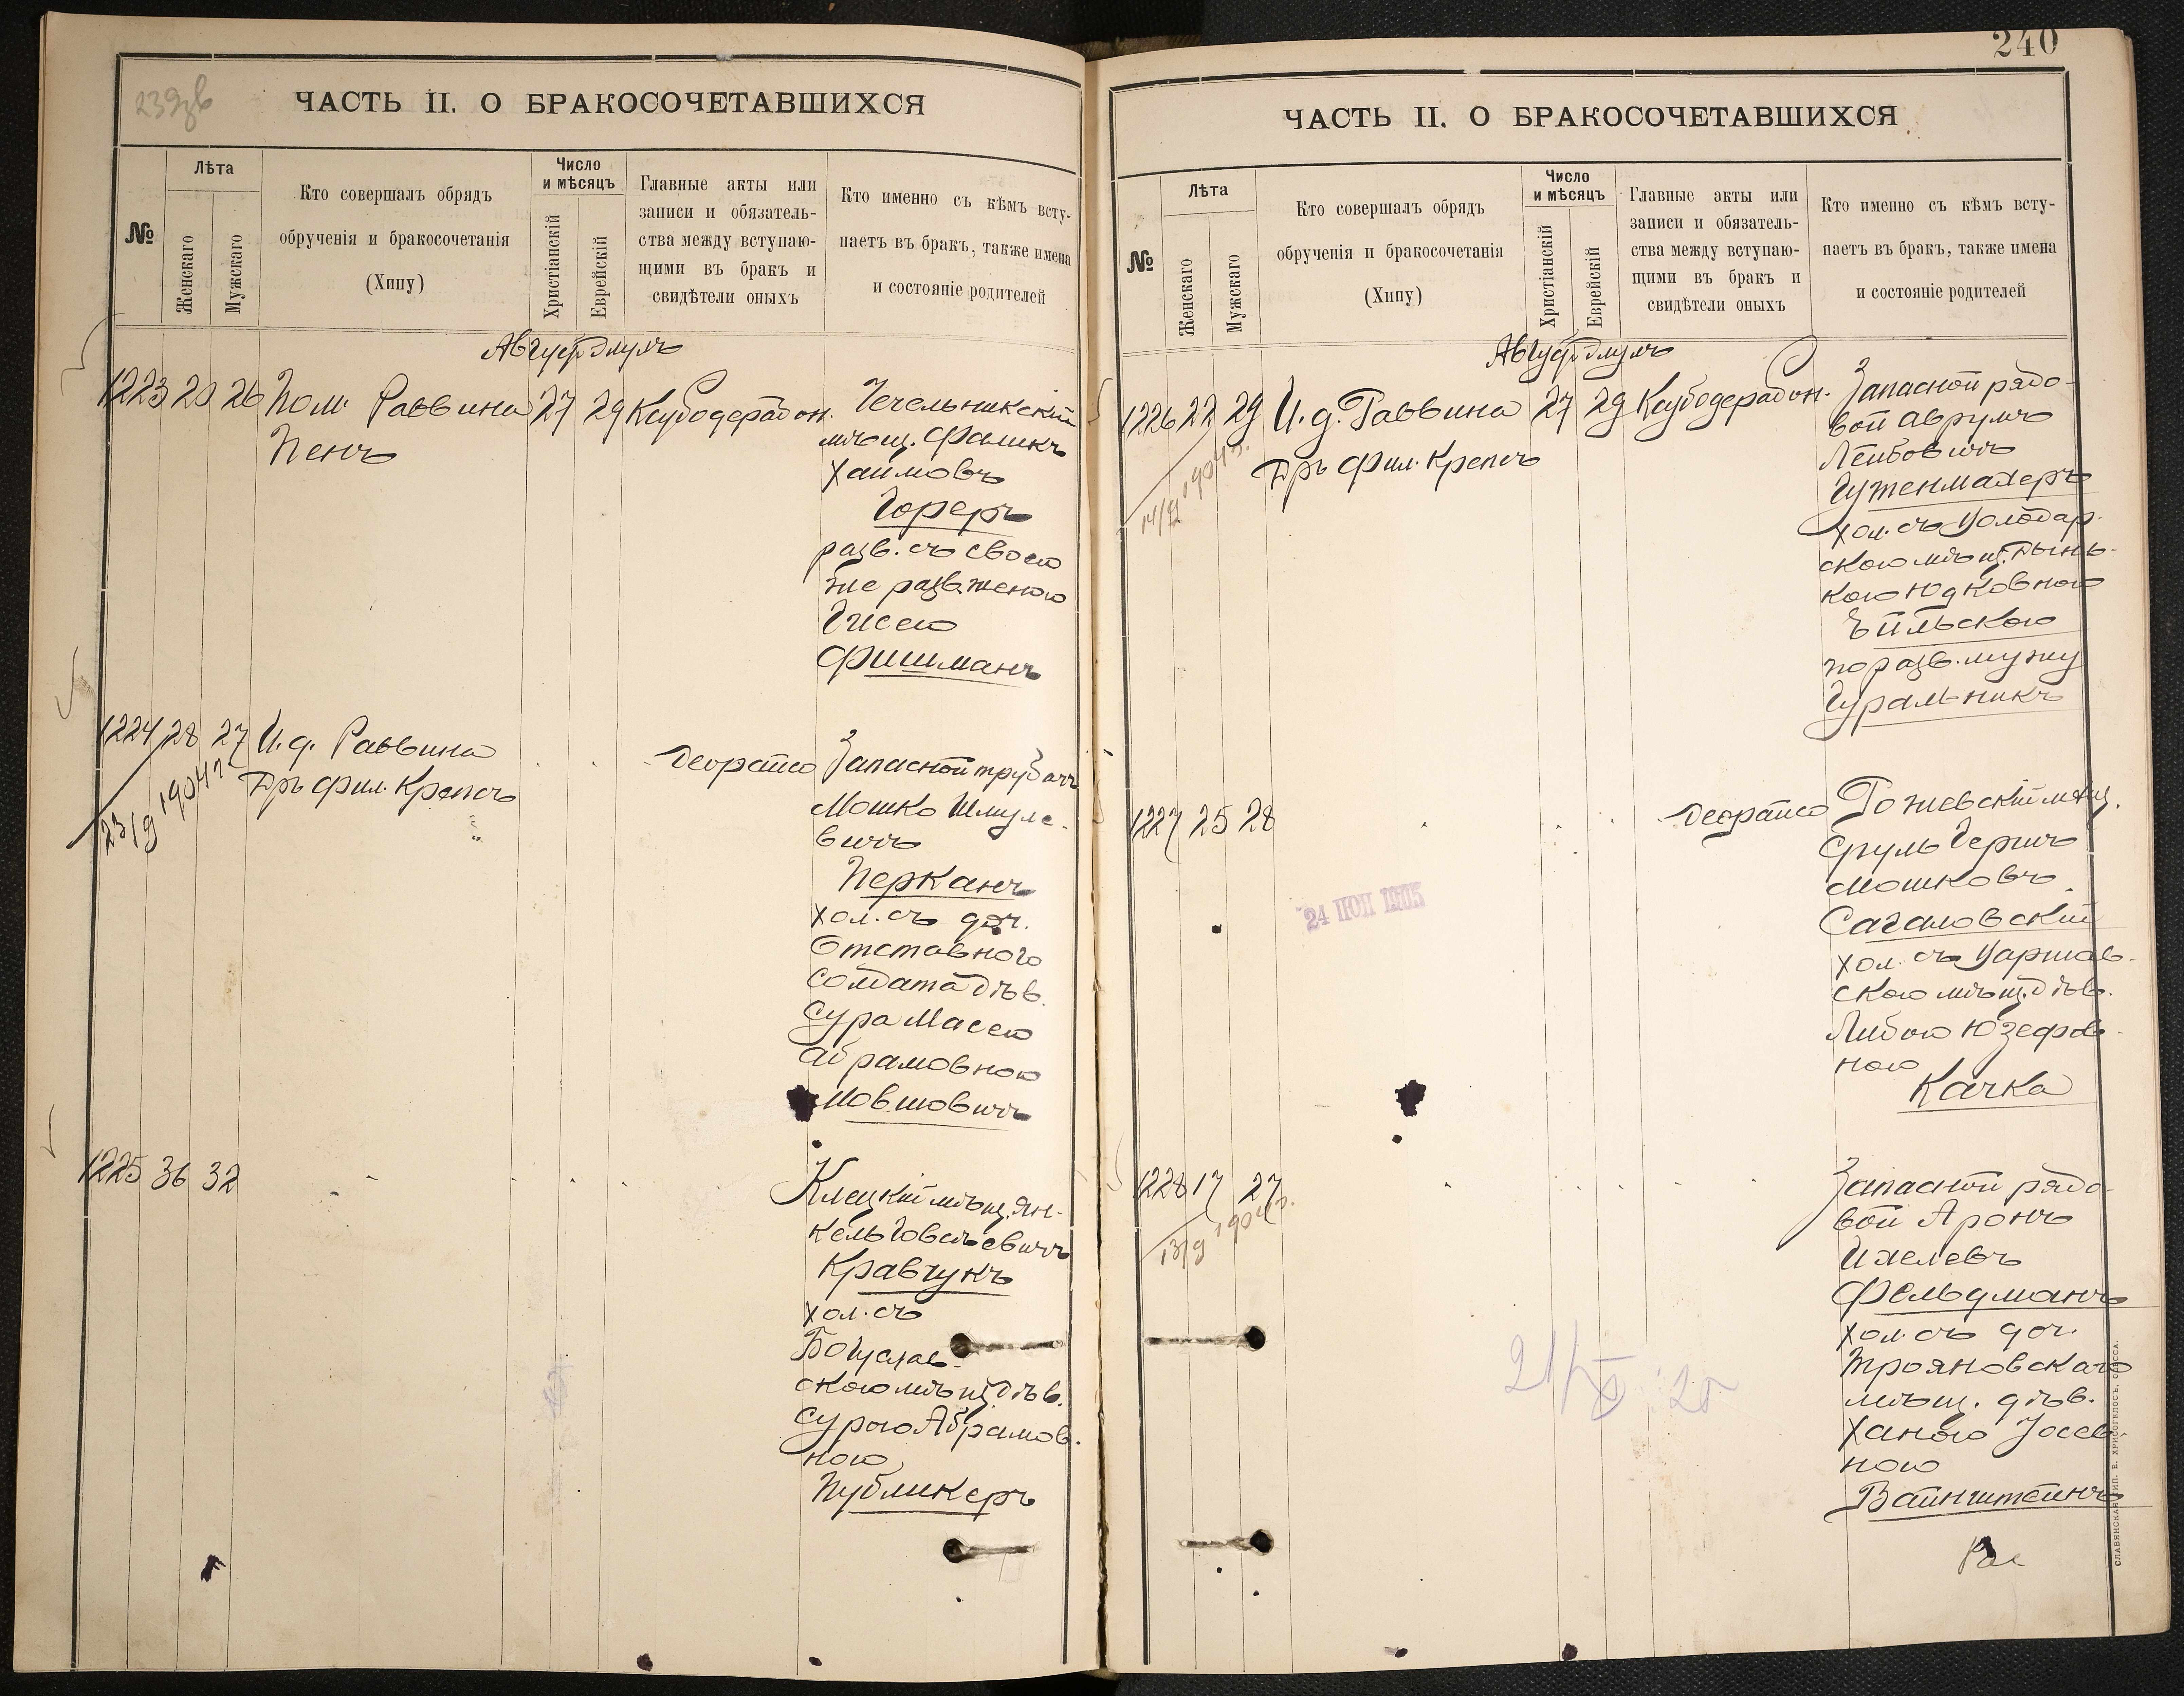 239зв
ЧАСТЬ II. О БРАКОСОЧЕТАВШИХСЯ
№
Лѣта
Женскаго
Мужскаго
Кто совершалъ обрядъ
обрученія и бракосочетанія
(Хипу)
Число
и мѣсяцъ
Христіанскій
Еврейскій
Главные акты или
записи и обязатель-
ства между вступаю-
щими въ бракъ и
свидѣтели оныхъ
Кто именно съ кѣмъ всту-
паетъ въ бракъ, также имена
и состояніе родителей
1223 20 26 Пом. Раввина 27 29
Пенъ
Чечельникскій
мѣщ. Фаликъ
Хаимовъ
Гореръ
разв. съ своею
же разв. женою
Гисею
Фишманъ
1224 28 27 И. д. Раввина
Дръ фил. Крепсъ
23/9 1904 г.
Запасной трубачъ
Мошко Шмуле-
вичъ
Перканъ
хол. съ доч.
Отставного
солдата дѣв.
Сура Масею
Абрамовною
Мовшовичъ
1225 36 32
Клецкій мѣщ. Ян-
кель Говсѣевичъ
Кравчукъ
хол. съ
Богуслав-
скою мѣщ. дѣв.
Сурою Абрамов-
ною
Публикеръ
240
ЧАСТЬ II. О БРАКОСОЧЕТАВШИХСЯ
№
Лѣта
Женскаго
Мужскаго
Кто совершалъ обрядъ
обрученія и бракосочетанія
(Хипу)
Число
и мѣсяцъ
Христіанскій
Еврейскій
Главные акты или
записи и обязатель-
ства между вступаю-
щими въ бракъ и
свидѣтели оныхъ
Кто именно съ кѣмъ всту-
паетъ въ бракъ, также имена
и состояніе родителей
1226 22 29 И. д. Раввина 27 29
Дръ фил. Крепсъ
14/9 1904 г.
Запасной рядо-
вой Аврумъ
Лейбовичъ
Гуженмахеръ
хол. съ Володар-
скою мѣщ. Дынь-
кою Юдковною
Бильскою
по разв. мужу
Гуральникъ
1227 25 28
24 1905
Рожевскій мѣщ.
Сруль Гершъ
Мошковъ
Сагаловскій
хол. съ Варшав-
скою мѣщ. дѣв.
Либою Юзефов-
ною
Качка
1228 17 27
13/9 1904 г.
Запасной рядо-
вой Аронъ
Ихелевъ
Фельдманъ
хол. съ доч.
Трояновскаго
мѣщ. дѣв.
Ханою Іосев-
ною
Вайнштейнъ
СЛАВЯНСКАЯ ТИП. Е. ХРИСОГЕЛОСЪ, ОДЕССА.